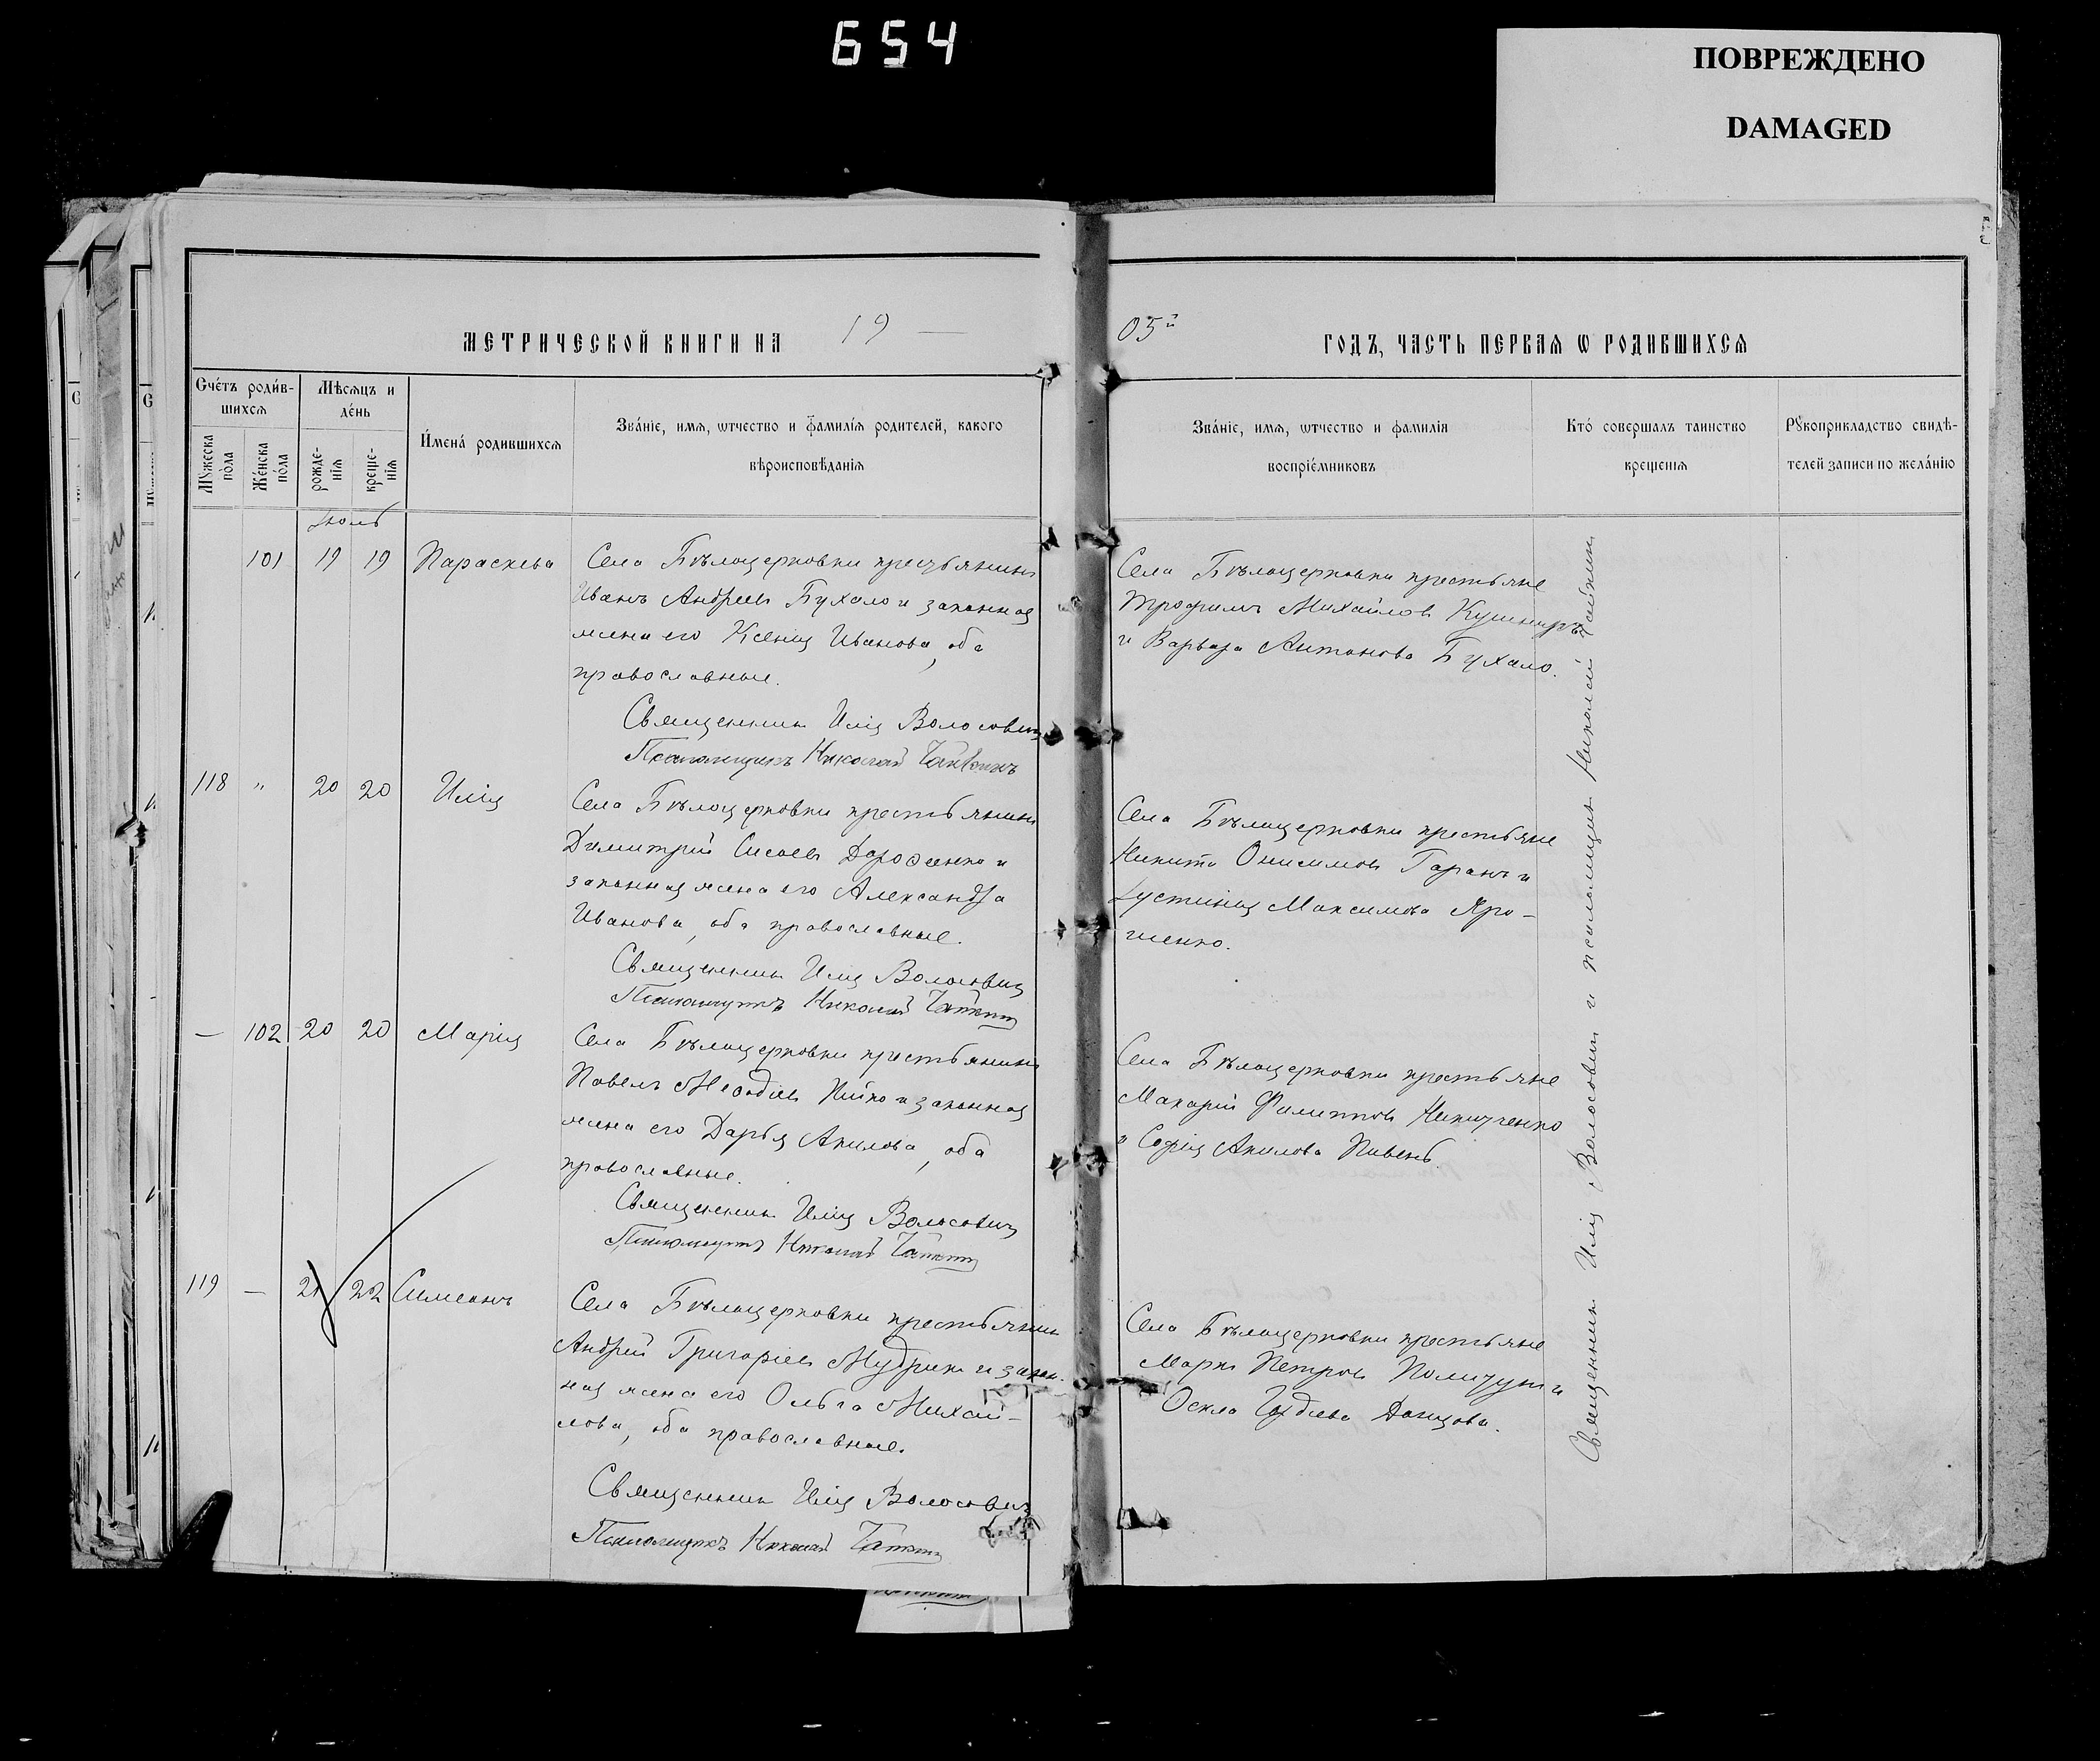 654
ПОВРЕЖДЕНО
DAMAGED
МЕТРИЧЕСКОЙ КНИГИ НА 19
05й ГОДЪ, ЧАСТЬ ПЕРВАЯ Ѡ РОДИВШИХСЯ
Счётъ роди́в-
шихся
Мѣсяцъ и
де́нь
Мꙋжеска
по́ла
Же́нска
по́ла
рожде-
нія
креще-
нія
И́мена́ родившихся
Зва́ніе, имя, ѡтчество и фамилія родителей, какого
вѣроисповѣданія
Зва́ніе, имя, ѡтчество и фамилія
воспріе́мниковъ
Кто́ совершалъ таинство
крещенія
Рꙋкоприкладство свидѣ-
телей записи по жела́нію
Іюль
101 19 19 Параскева
Села Бѣлоцерковки крестьянинъ
Иванъ Андреевъ Бухало и законная
жена его Ксенія Иванова, оба
православные.
Священникъ Илія Волосовичъ
Псаломщикъ Николай
Села Бѣлоцерковки крестьяне
Трофимъ Михайловъ Кушниръ
и Варвара Антонова Бухало.
118 " 20 20 Илія
Села Бѣлоцерковки крестьянинъ
Димитрій Сисоевъ Дорошенко и
законная жена его Александра
Иванова, оба православные.
Священникъ Илія Волосовичъ
Псаломщикъ Николай
Села Бѣлоцерковки крестьяне
Никита Онисимовъ Гаранъ и
Іустинія Максимова Яро-
шенко.
— 102 20 20 Марія
Села Бѣлоцерковки крестьянинъ
Павелъ Меѳодіевъ и законная
жена его Дарья Акилова, оба
православные.
Священникъ Илія Волосовичъ
Псаломщикъ Николай
Села Бѣлоцерковки крестьяне
Макарій Филипповъ Никитченко
и Софія Акилова Пивень.
119 — 21 22 Симеонъ
Села Бѣлоцерковки крестьянинъ
Андрей Григоріевъ Мудрикъ и закон-
ная жена его Ольга Михай-
лова, оба православные.
Священникъ Илія Волосовичъ
Псаломщикъ Николай
Села Бѣлоцерковки крестьяне
Маркъ Петровъ и
Ѳекла Донцова.
Священникъ Илія Волосовичъ и псаломщикъ Николай